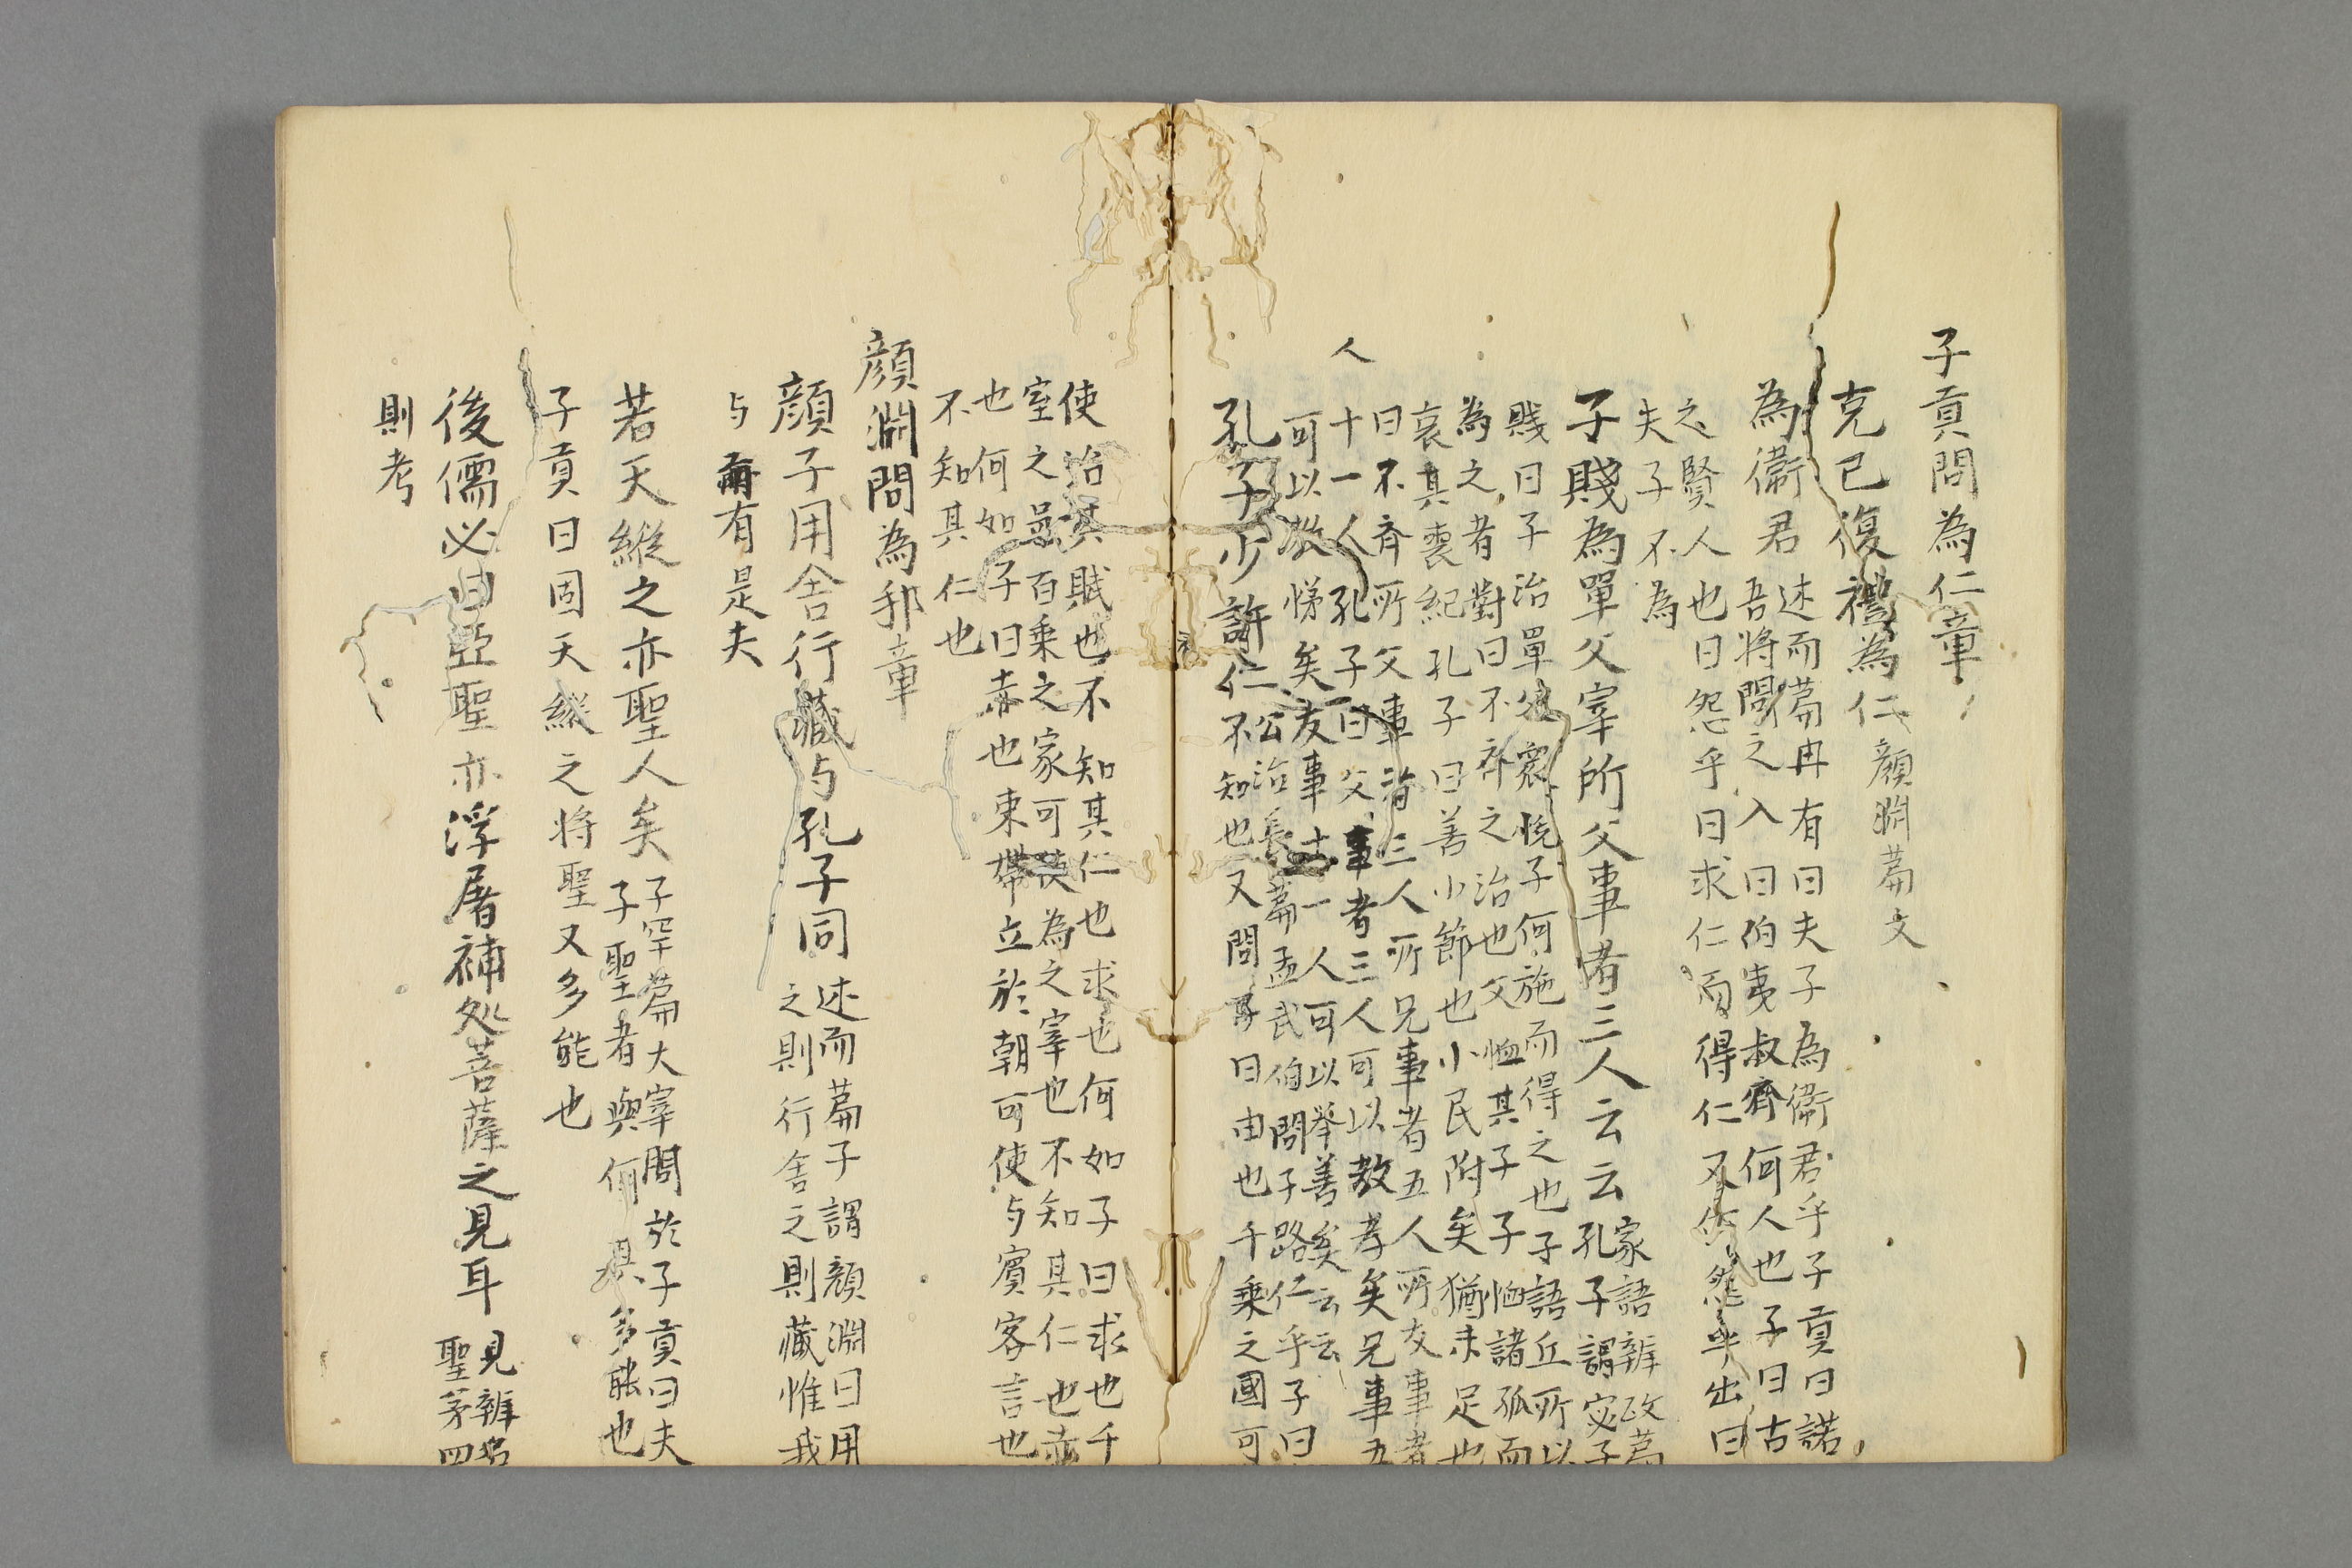 子貢問為仁章
克己復禮為仁 顏淵篇文
為衞君 述而篇冉有曰夫子為衞君乎子貢曰諾
吾將問之入曰伯夷叔齊何人也子曰古
之賢人也曰怨乎曰求仁而得仁又何怨乎出曰
夫子不為
子賤為單父宰所父事者三人云云 家語辨政篇
孔子謂宓子
賤曰子治單父衆悅子何施而得之也子語丘所以
為之者對曰不齊之治也父恤其子子恤諸孤而
哀其喪紀孔子曰善小節也小民附矣猶未足也
曰不齊所父事者三人所兄事者五人所友事者
十一人孔子曰父事者三人可以教孝矣兄事五
人
可以教悌矣友事十一人可以举善矣云云
孔子少許仁 公冶長篇孟武伯問子路仁乎子曰
不知也又問子曰由也千乘之國可
使治其賦也不知其仁也求也何如子曰求也千
室之邑百乘之家可使為之宰也不知其仁也赤
也何如子曰赤也束帶立於朝可使与賓客言也
不知其仁也
顏淵問為邦章
顏子用舍行藏与孔子同 述而篇子謂顏淵曰用
之則行舍之則藏惟我
与爾有是夫
若天縱之亦聖人矣 子罕篇大宰問於子貢曰夫
子聖者與何其多能也
子貢曰固天縱之将聖又多能也
後儒必曰亞聖亦浮屠補処菩薩之見耳 見辨名
聖茅四
則考